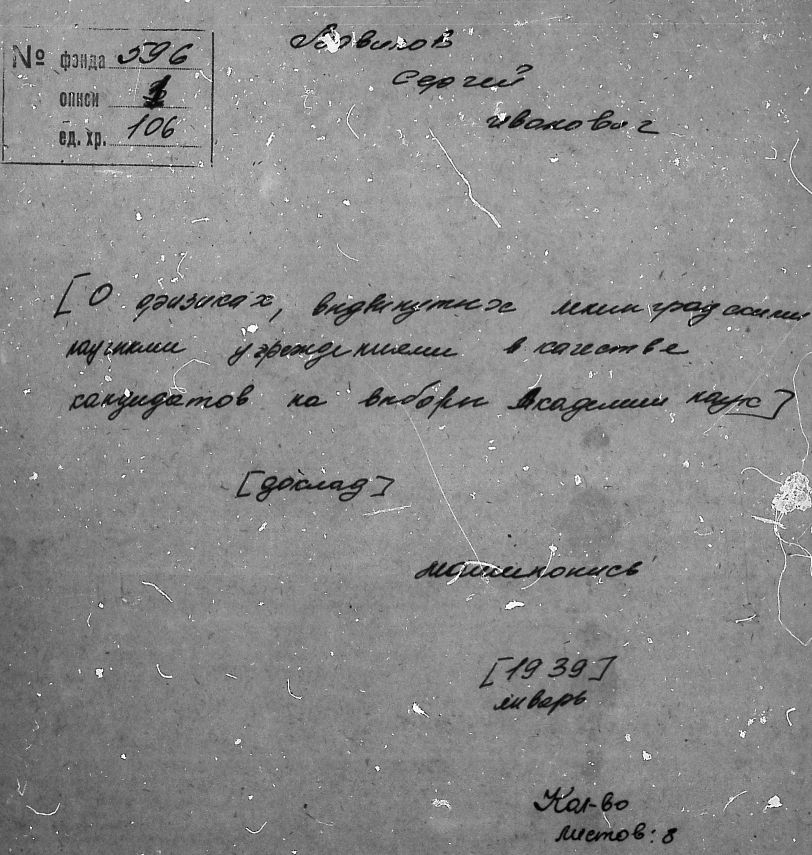 № фонда 596
описи 1
ед. хр. 106
Вавилов
Сергей
Иванович
[О физиках, выдвинутых ленинградскими
научными учреждениями в качестве
кандидатов на выборы Академии наук]
[доклад]
машинопись
[1939]
январь
Кол-во
листов: 8